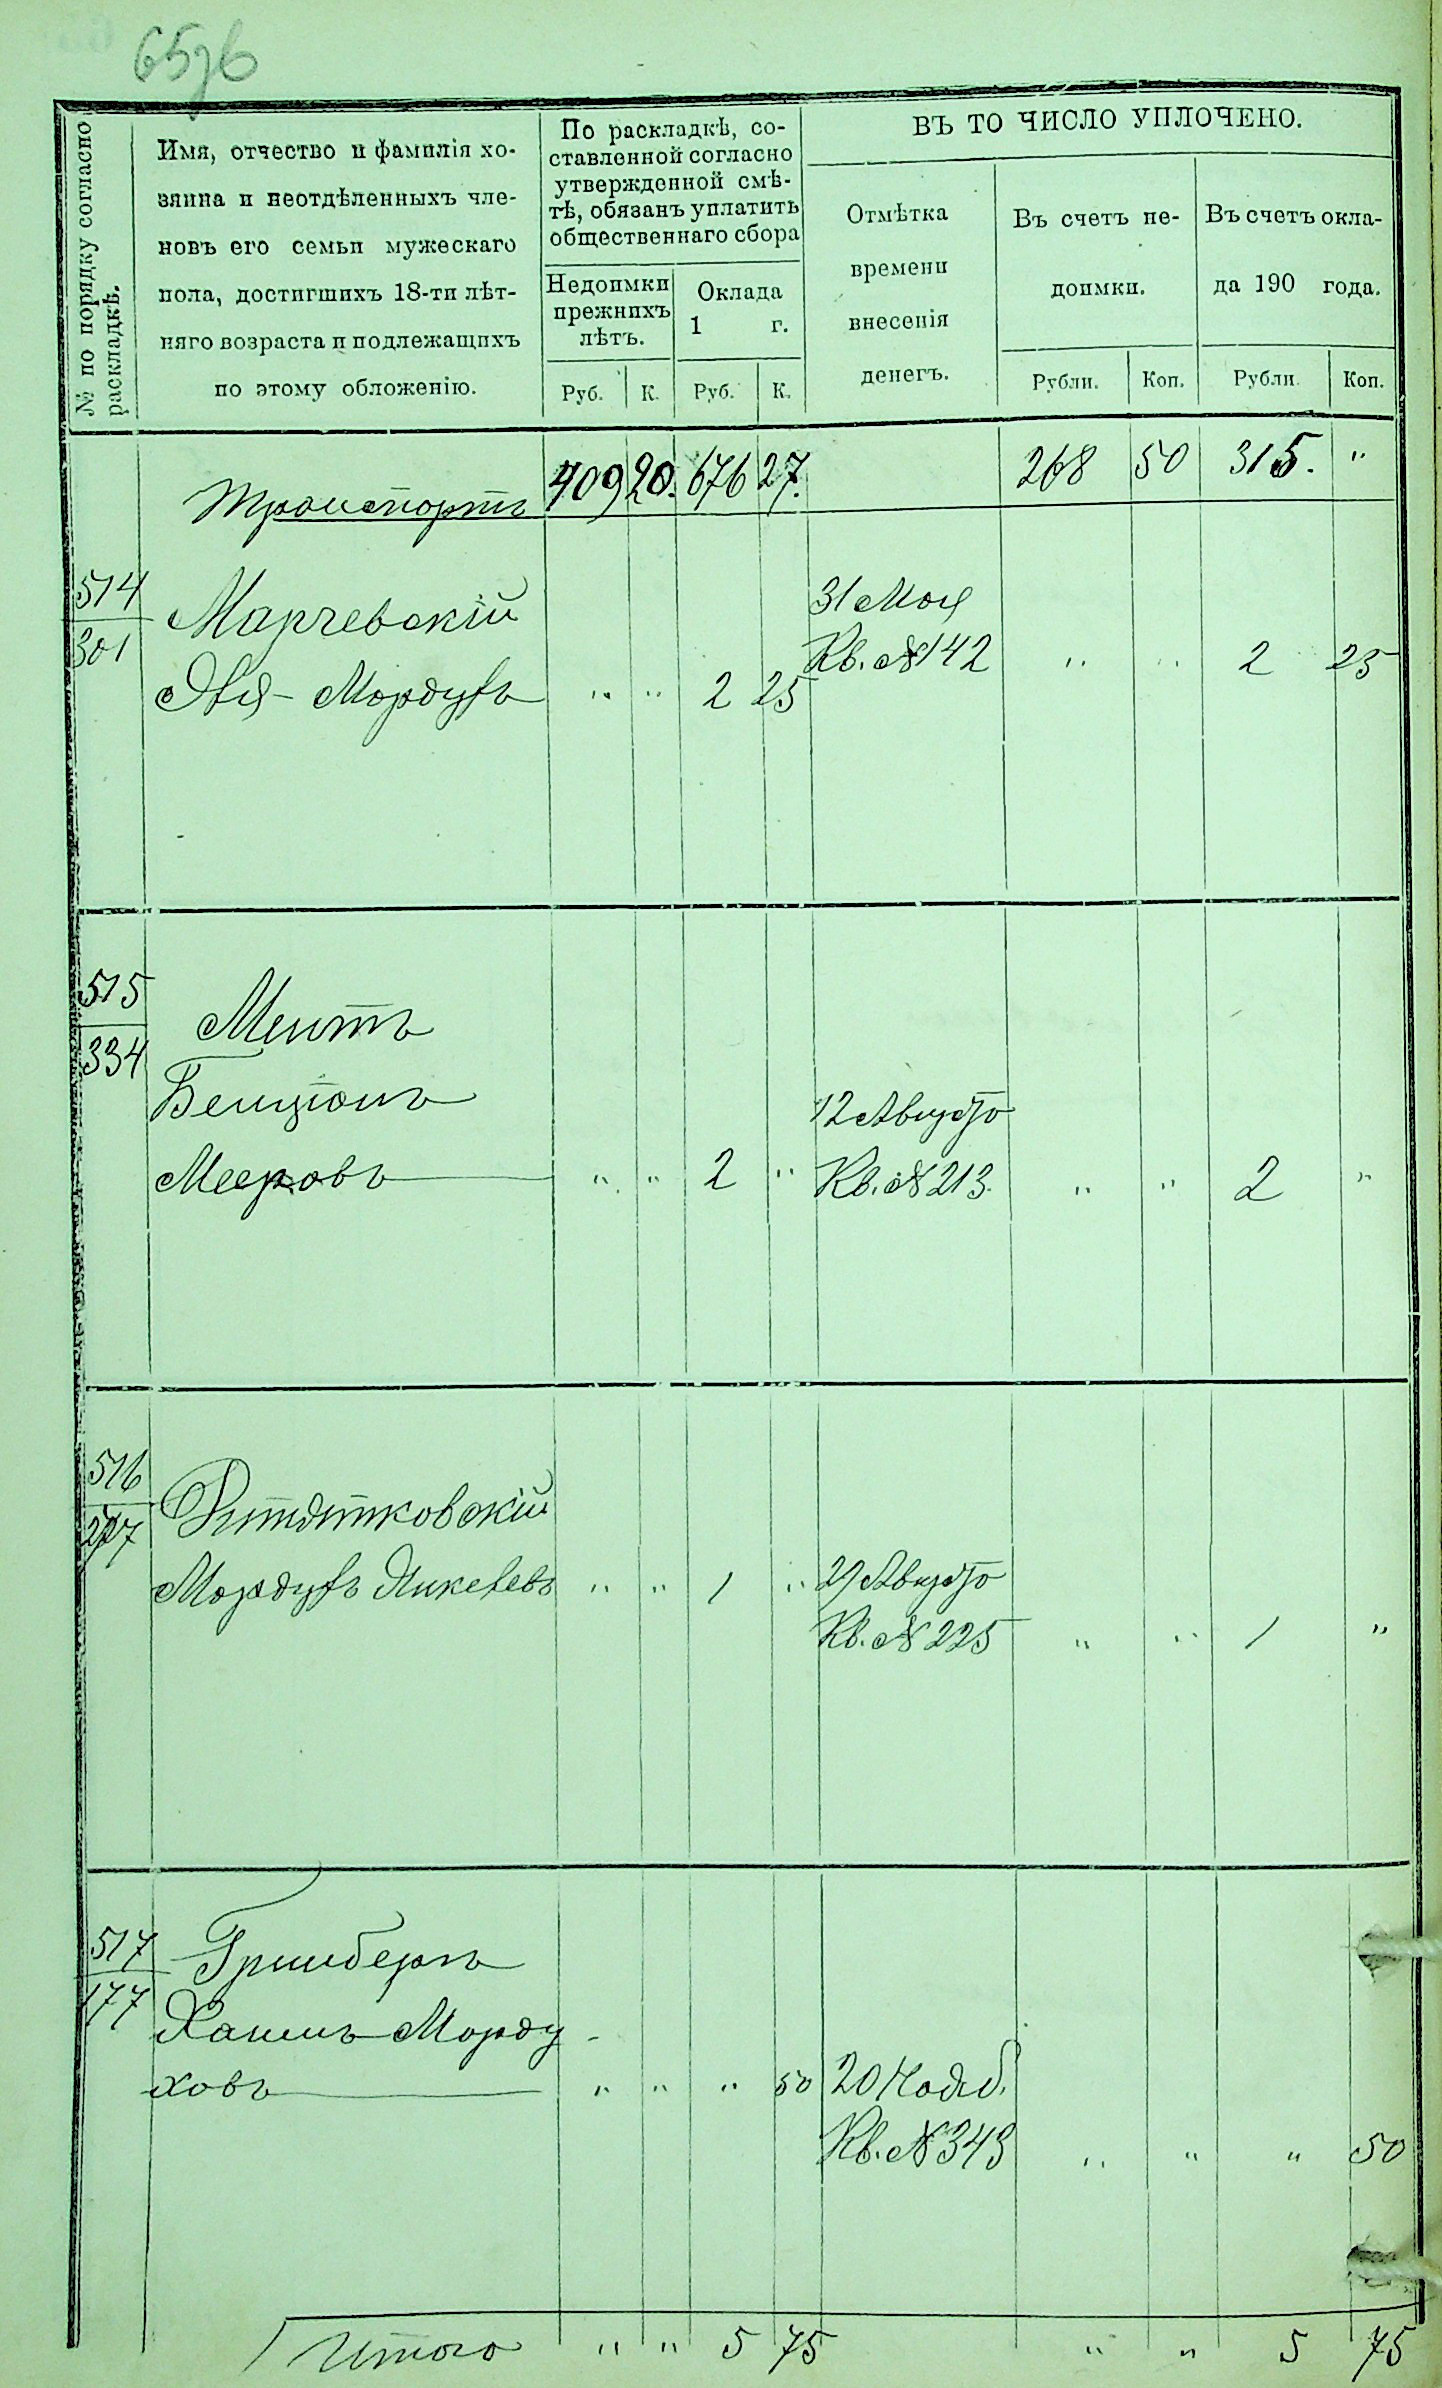 65 об
№ по порядку согласно раскладкѣ.
Имя, отчество и фамилія хо-
зяина и неотдѣленныхъ чле-
новъ его семьи мужескаго
пола, достигшихъ 18-ти лѣт-
няго возраста и подлежащихъ
по этому обложенію.
По раскладкѣ, со-
ставленной согласно
утвержденной смѣ-
тѣ, обязанъ уплатить
общественнаго сбора
Недоимки
прежнихъ
лѣтъ.
Оклада
1 г.
Руб. К. Руб. К.
ВЪ ТО ЧИСЛО УПЛОЧЕНО.
Отмѣтка
времени
внесенія
денегъ.
Въ счетъ не-
доимки.
Въ счетъ окла-
да 190 года.
Рубли. Коп. Рубли. Коп.
Транспортъ 409 20. 676 27. 268 50 315. "
514
301
Марчевскій
Мордухъ " " 2 25
31 Мая
Кв. № 142 " " 2 25
515
334
Ментъ
Бенціонъ
Мееровъ " " 2 "
12 Августо
Кв. № 213. " " 2 "
516
Мордухъ " " 1 "
29 Августо
Кв. № 225 " " 1 "
517
177
Гринбергъ
Хаимъ Морду-
ховъ " " " 50
20 Нояб.
Кв. № 343 " " " 50
Итого " " 5 75 " " 5 75